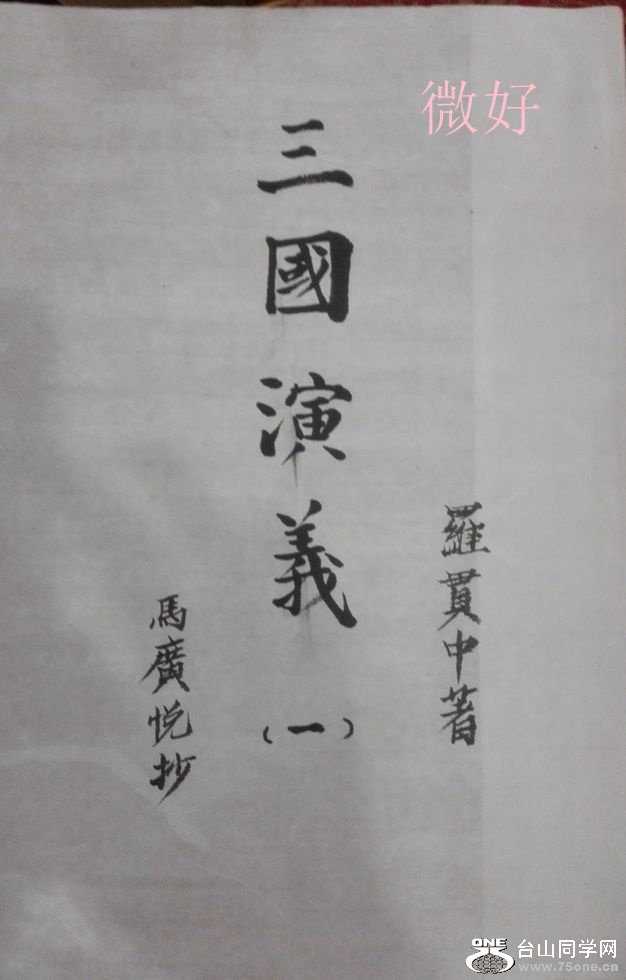 微好
羅貫中著
三國演義
（一）
馬廣悦抄
ONE
台山同学网
www.75one.cn